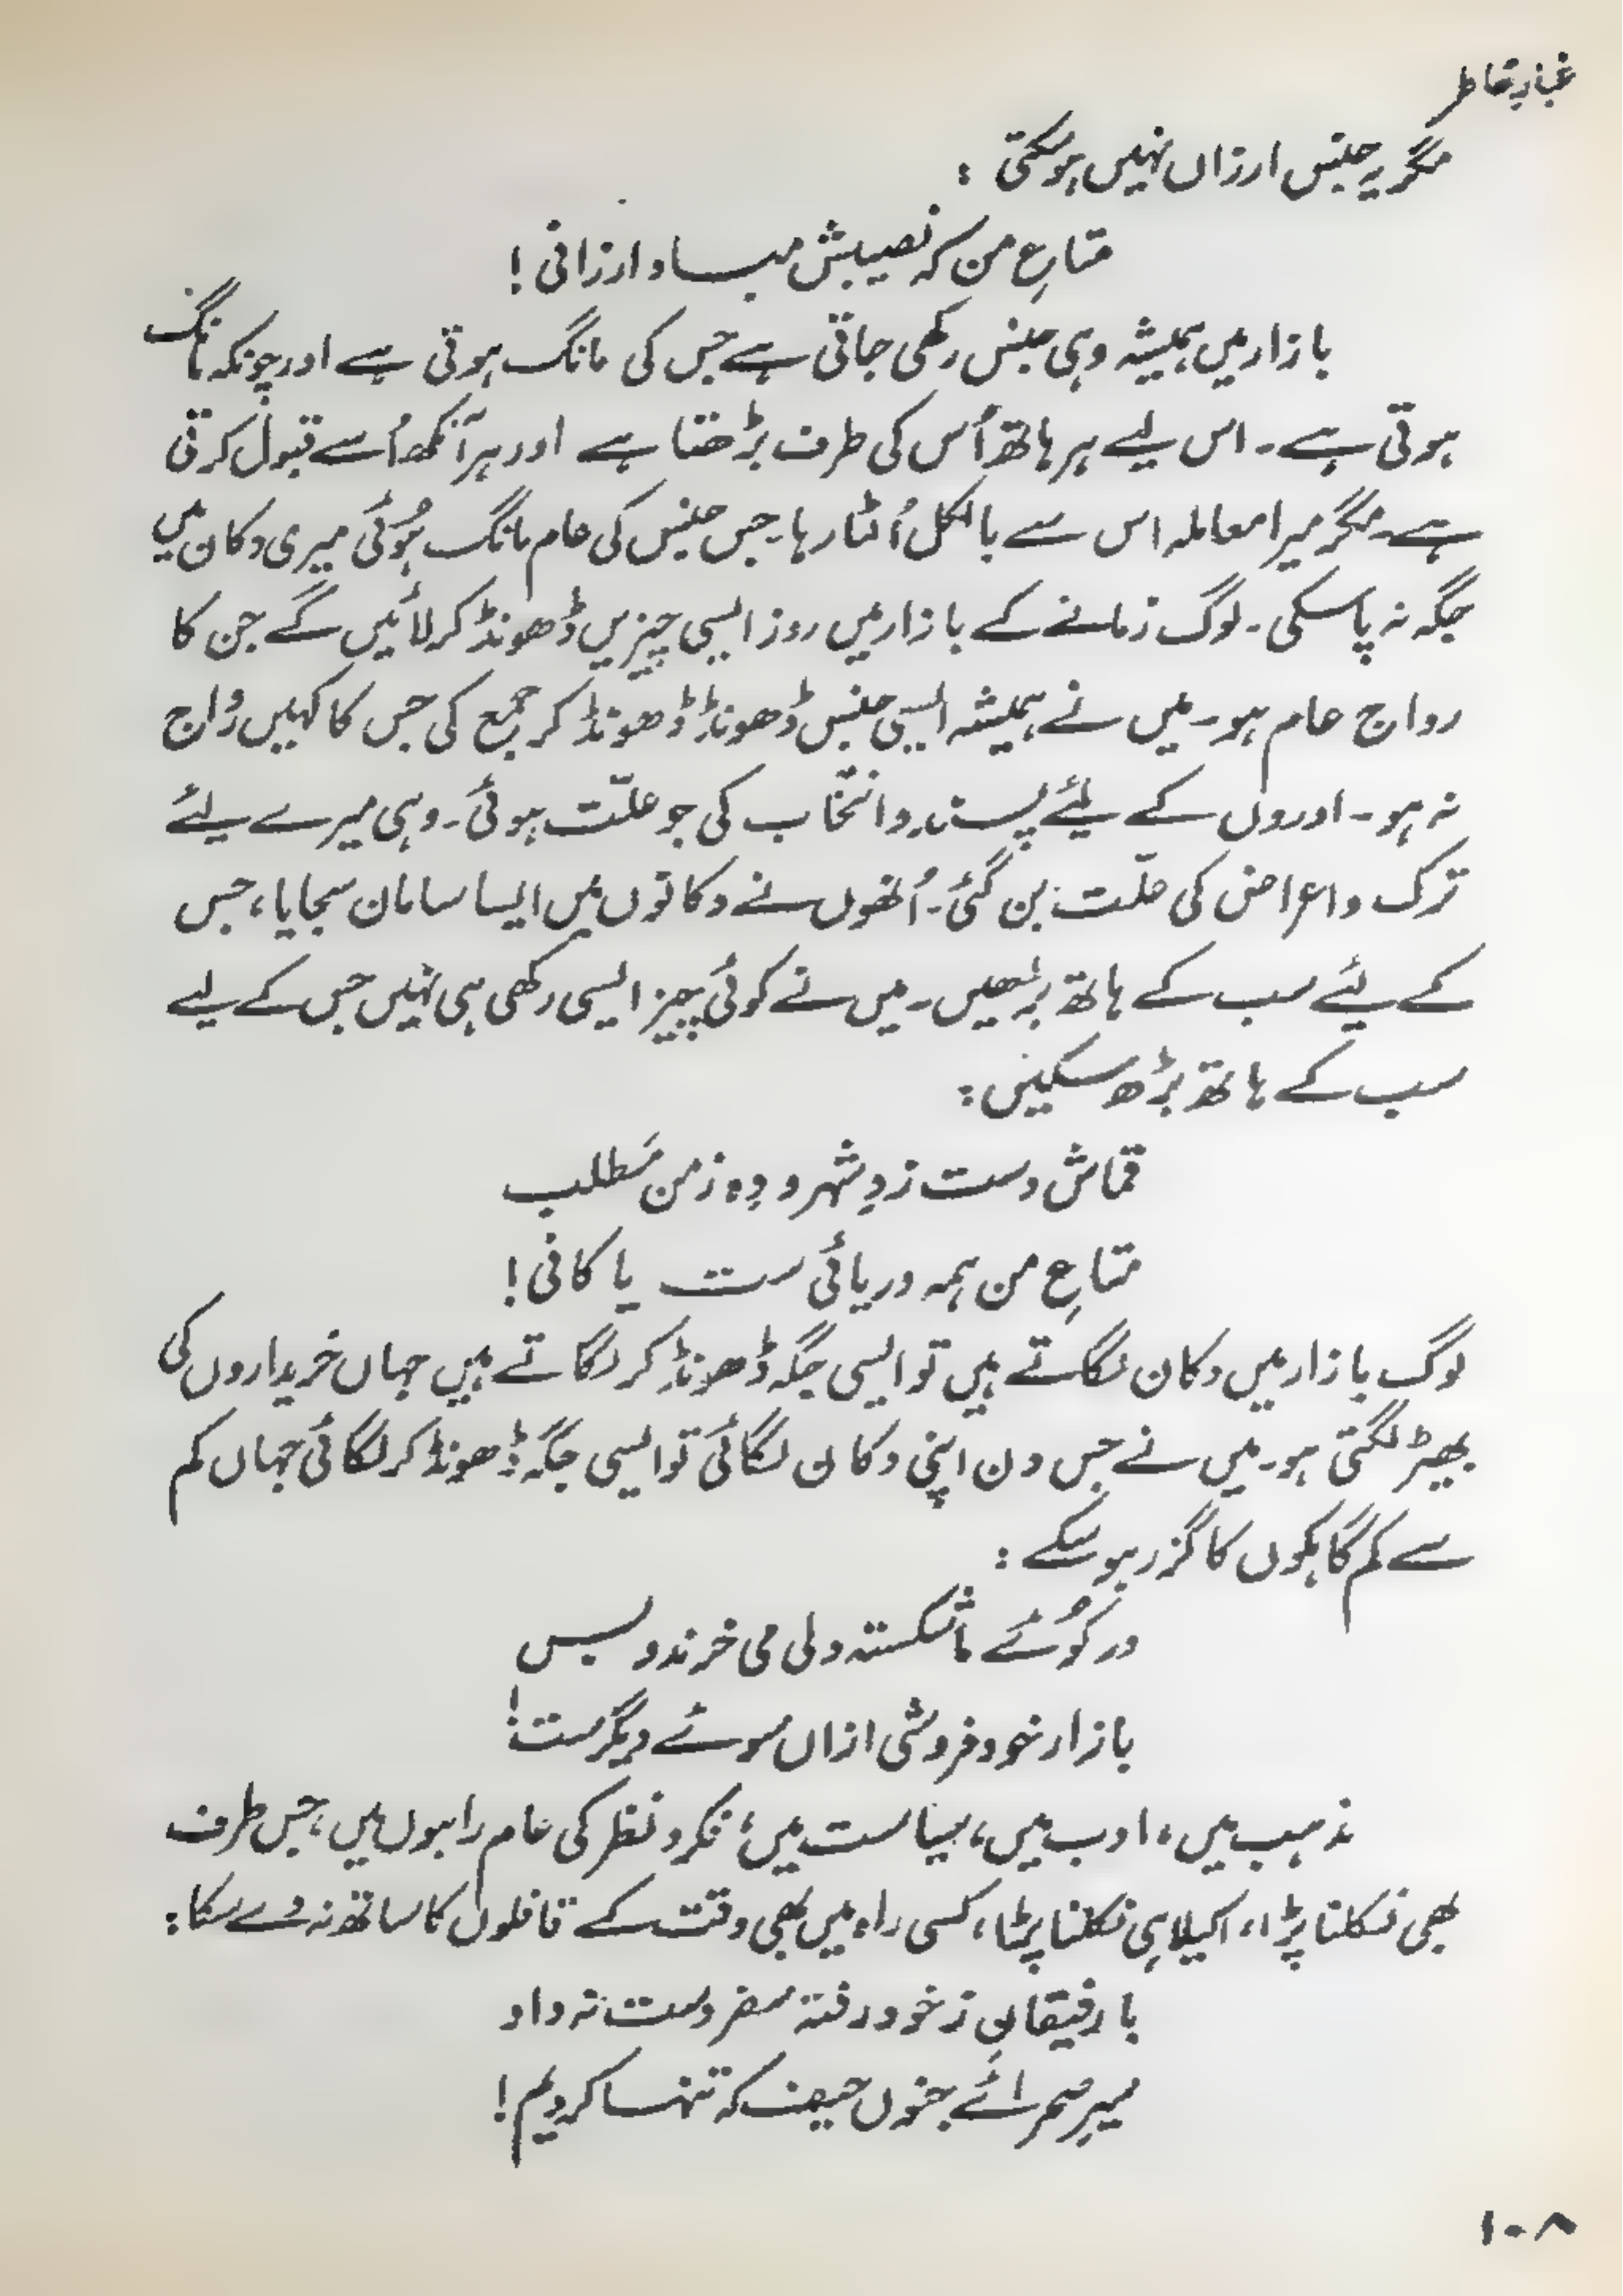 غبارِ خاطر
مگر یہ جنس ارزاں نہیں ہوسکتی :
متاعِ من کہ نصیبش مباد ارزانی !
بازار میں ہمیشہ وہی جنس رکھی جاتی ہے جس کی مانگ ہوتی ہے اور چونکہ مانگ
ہوتی ہے۔ اس لیے ہر ہاتھ اُس کی طرف بڑھتا ہے اور ہر آنکھ اُسے قبول کرتی
ہے۔ مگر میرا معاملہ اس سے بالکل اُلٹا رہا۔ جس جنس کی عام مانگ ہوئی میری دکان میں
جگہ نہ پاسکی۔ لوگ زمانے کے بازار میں روز ایسی چیزیں ڈھونڈ کر لائیں گے جن کا
رواج عام ہو۔ میں نے ہمیشہ ایسی جنس ڈھونڈ ڈھونڈ کر جمع کی جس کا کہیں رواج
نہ ہو۔ اوروں کے لیئے پسند و انتخاب کی جو علّت ہوئی۔ وہی میرے لیئے
ترک و اعراض کی علّت بن گئی۔ اُنھوں نے دکانوں میں ایسا سامان سجایا، جس
کے لیئے سب کے ہاتھ بڑھیں۔ میں نے کوئی چیز ایسی رکھی ہی نہیں جس کے لیے
سب کے ہاتھ بڑھ سکیں :
قماش دست زدِ شہر و دِہ ز من مَطلب
متاعِ من ہمہ دریائی ست یا کانی !
لوگ بازار میں دکان لگاتے ہیں تو ایسی جگہ ڈھونڈ کر لگاتے ہیں جہاں خریداروں کی
بھیڑ لگتی ہو۔ میں نے جس دن اپنی دکان لگائی تو ایسی جگہ ڈھونڈ کر لگائی جہاں کم
سے کم گاہکوں کا گزر ہوسکے :
در کوئے ما شکستہ دلی می خرند و بس
بازار خود فروشی ازاں سوئے دیگرست !
مذہب میں، ادب میں، سیاست میں، فکر و نظر کی عام راہوں میں، جس طرف
بھی نکلنا پڑا، اکیلا ہی نکلنا پڑا، کسی راہ میں بھی وقت کے قافلوں کا ساتھ نہ دے سکا :
با رفیقانِ ز خود رفتہ سفر دست نہ داد
سیرِ صحرائے جنوں حیف کہ تنہا کردیم !
۱۰۸